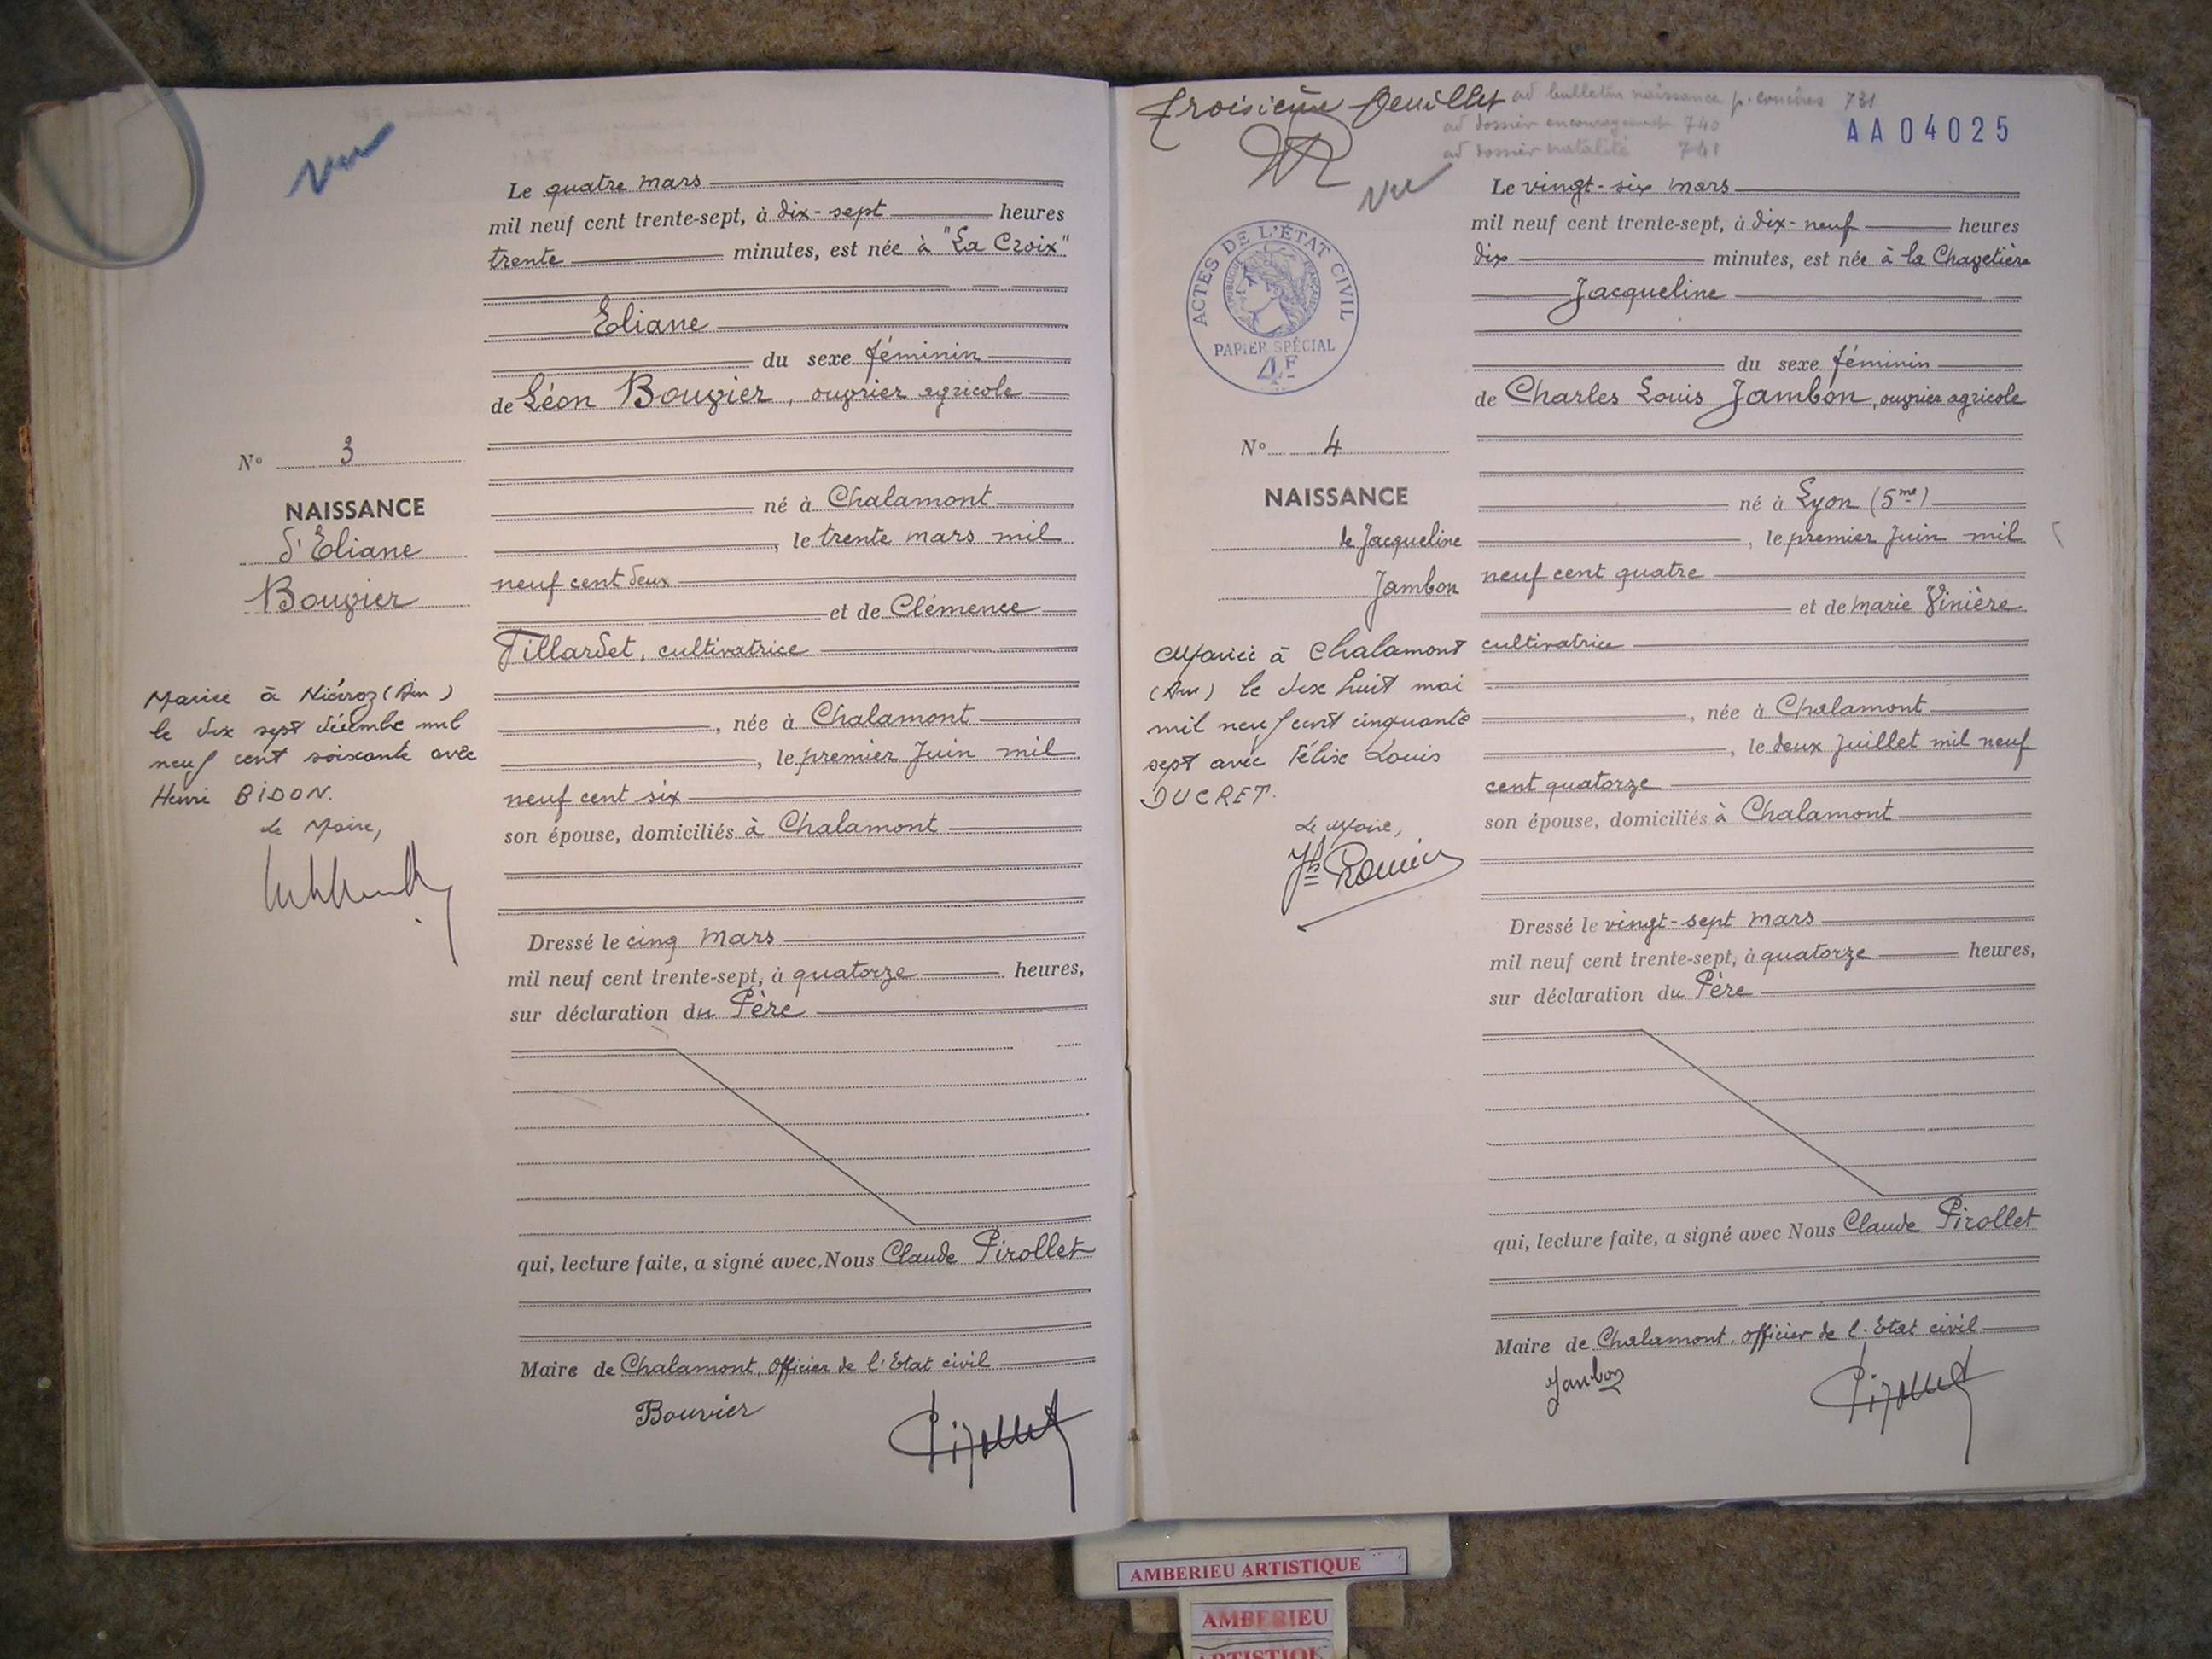 vu
Le quatre mars
mil neuf cent trente-sept, à dix-sept heures
trente minutes, est née à "La Croix"
Eliane
du sexe féminin
de Léon Bouvier, ouvrier agricole
né à Chalamont
, le trente mars mil
neuf cent deux
et de Clémence
Tillardet, cultivatrice
, née à Chalamont
, le premier Juin mil
neuf cent six
son épouse, domiciliés à Chalamont
Dressé le cinq mars
mil neuf cent trente-sept, à quatorze heures,
sur déclaration du Père
qui, lecture faite, a signé avec Nous Claude Pirollet
Maire de Chalamont, Officier de l'Etat civil
Bouvier
Pirollet
No 3
NAISSANCE
d'Eliane
Bouvier
Mariée à Niévroz (Ain)
le dix sept décembre mil
neuf cent soixante avec
Henri BIDON.
Le Maire,
Troisième feuillet
ad bulletin naissance p. couches 731
ad dossier encouragement 740
ad dossier natalité 741
AA04025
vu
ACTES DE L'ÉTAT CIVIL
RÉPUBLIQUE FRANÇAISE
PAPIER SPÉCIAL
4F
No 4
NAISSANCE
de Jacqueline
Jambon
Mariée à Chalamont
(Ain) le dix huit mai
mil neuf cent cinquante
sept avec Félix Louis
DUCRET.
Le Maire,
Le vingt-six mars
mil neuf cent trente-sept, à dix-neuf heures
dix minutes, est née à la Chavetière
Jacqueline
du sexe féminin
de Charles Louis Jambon, ouvrier agricole
né à Lyon (5me)
, le premier Juin mil
neuf cent quatre
et de Marie Vinière
cultivatrice
, née à Chalamont
, le deux Juillet mil neuf
cent quatorze
son épouse, domiciliés à Chalamont
Dressé le vingt-sept mars
mil neuf cent trente-sept, à quatorze heures,
sur déclaration du Père
qui, lecture faite, a signé avec Nous Claude Pirollet
Maire de Chalamont, Officier de l'Etat civil
Jambon
Pirollet
AMBERIEU ARTISTIQUE
AMBERIEU